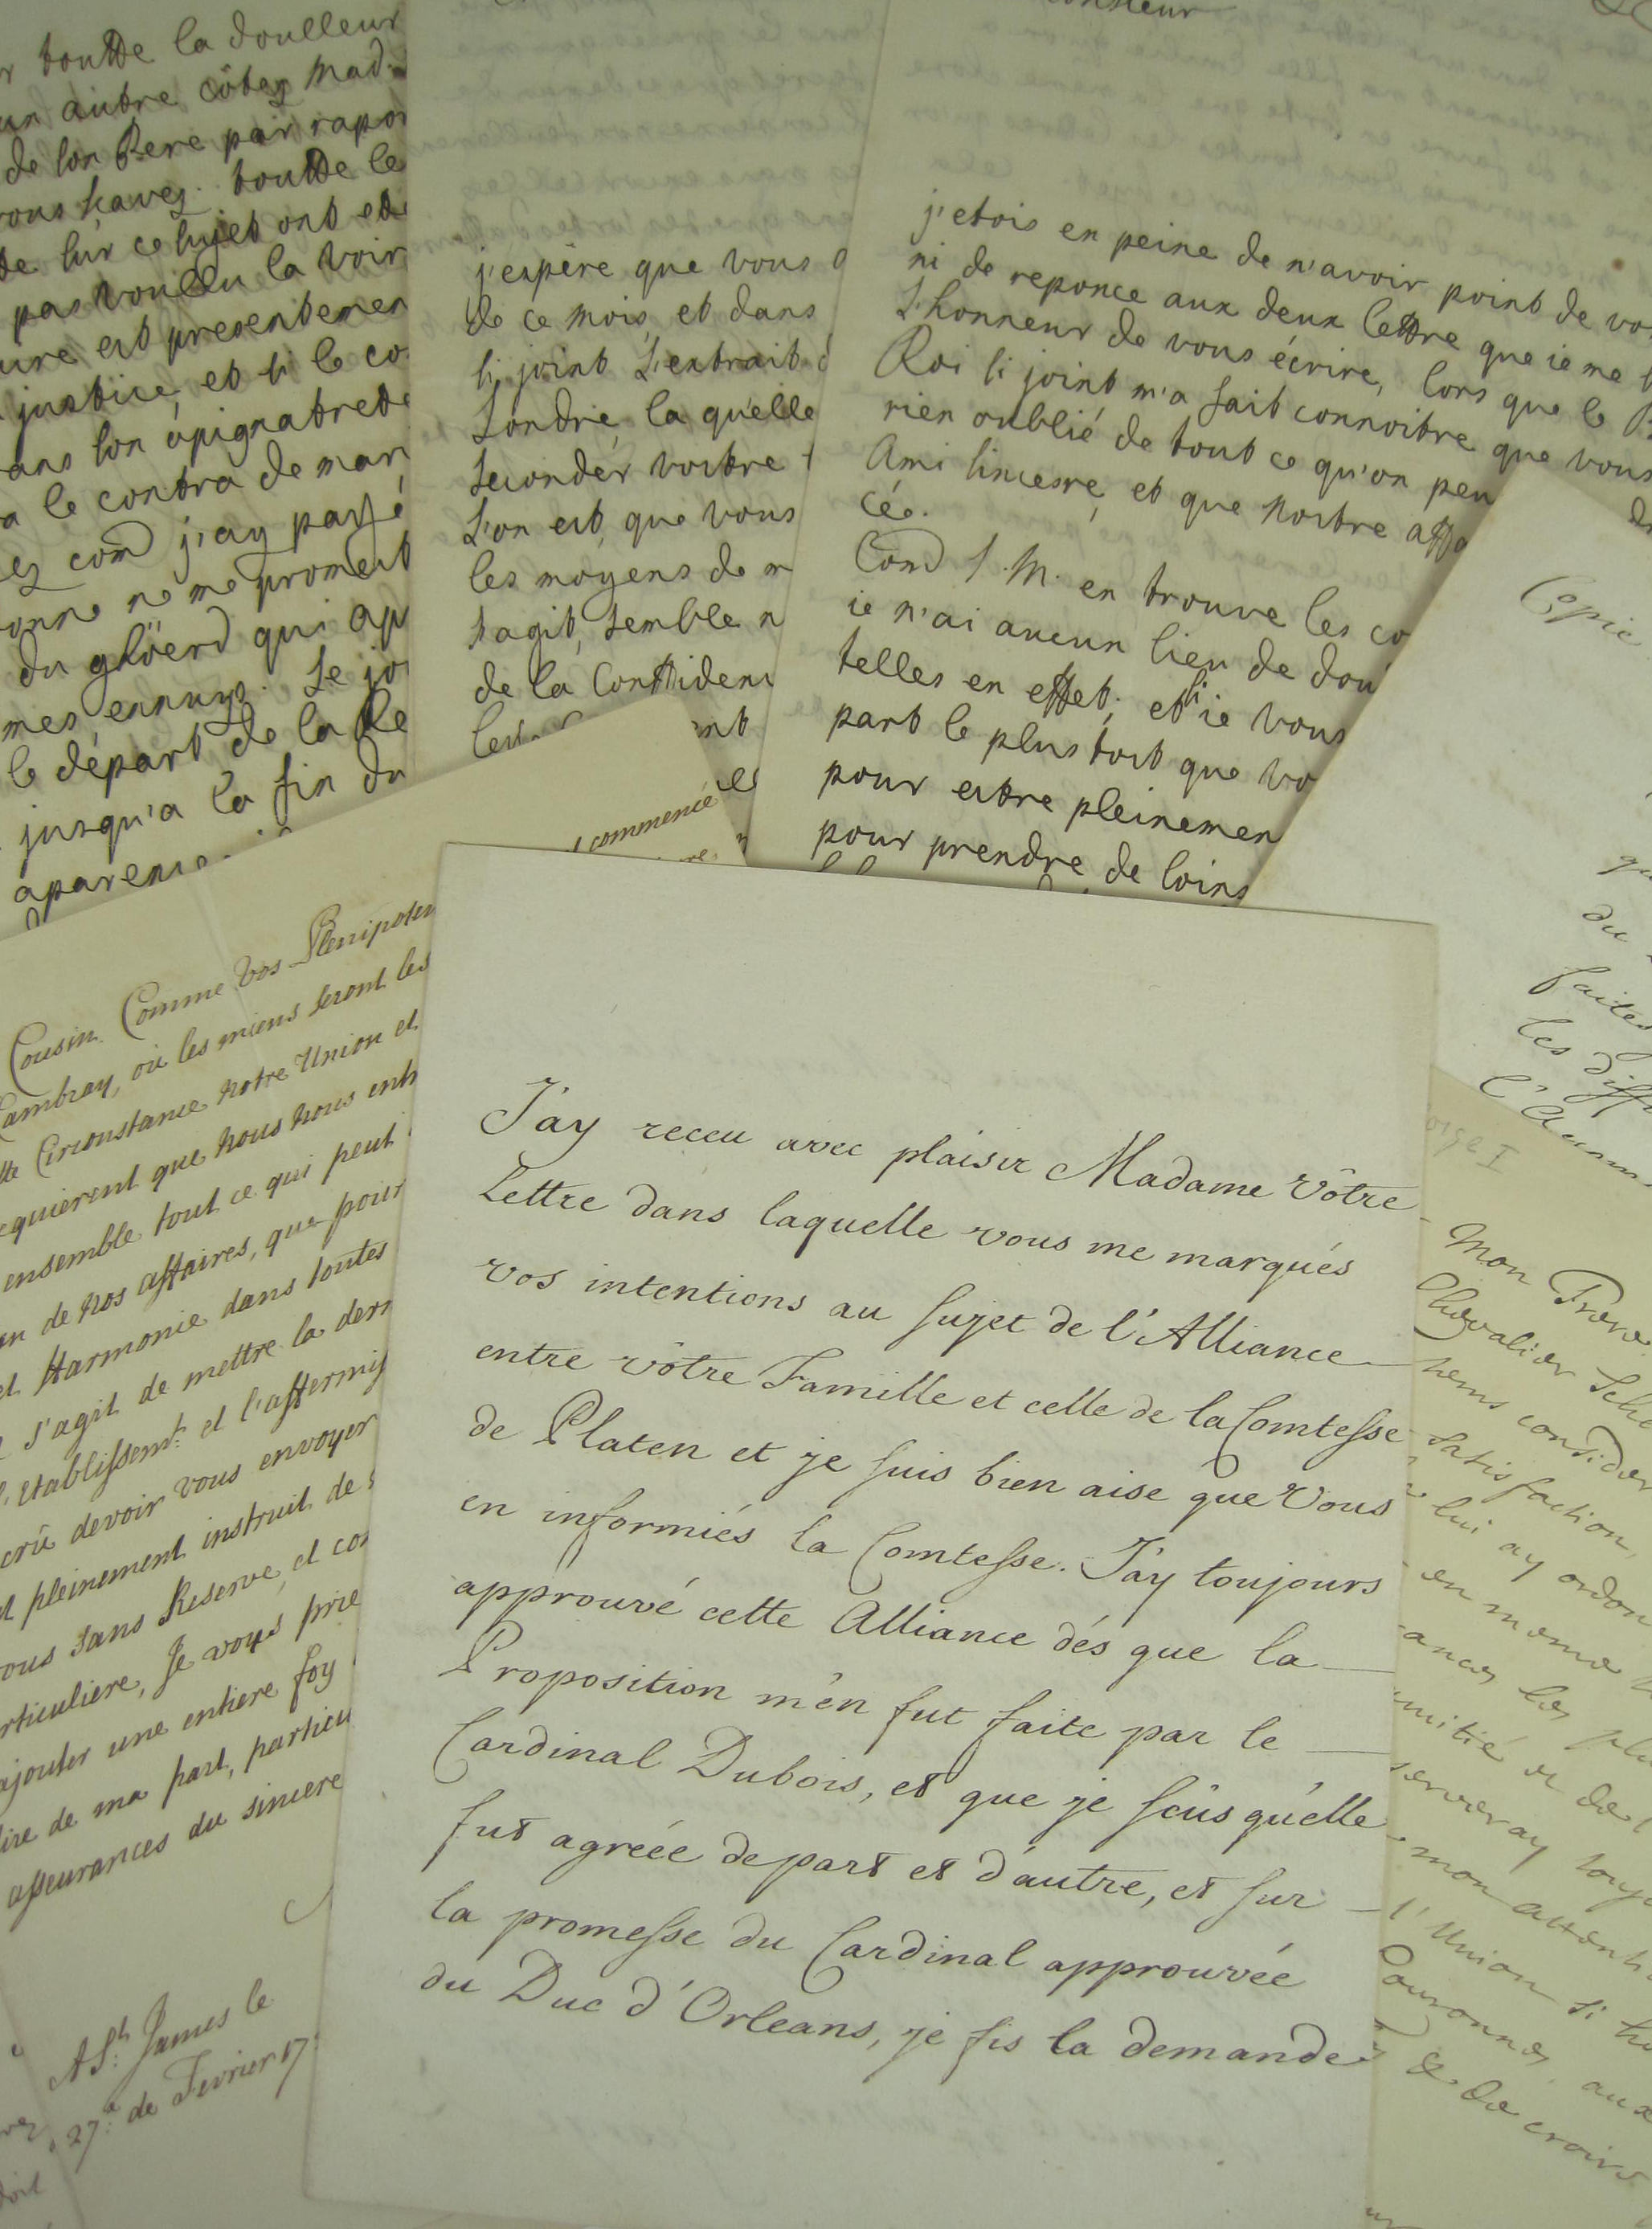 toutte la doulleur
un autre côtez Mad.
de son Pere par rapor
vous sçavez. toutte le
sur ce sujet ont eté
pas voullu la voir
est presentemen
justice, et si le co
son opignatrete
le contra de mar
com̃ j'ay passé
ne me promest
du glöerd qui ap
mes ennuys. Le jo
le départ de la Re
jusqu'a la fin du
j'espère que vous
de ce mois, et dans
si joint L'extrait
Londre, la qu'elle
seconder vostre
L'on est, que vous
les moyens de
s'agit, semble
de la Confidenc
j'etois en peine de n'avoir point de vo
ni de reponce aux deux lettre que ie me
L'honneur de vous écrire, lors que le
Roi si joint m'a fait connoitre que vous
rien oublié de tout ce qu'on peu
Ami sincesre, et que nostre affa
cée.
Com̃ S. M. en trouve les co
ie n'ai aucun lieu de dou
telles en effet; et si ie vous
part le plus tost que vo
pour estre pleinemen
pour prendre de soins
commencé
Copie
du
faites
les diff
Cousin. Comme vos Plenipoten
Cambray, où les miens seront les
Circonstance notre Union et
requierent que nous nous entr
ensemble tout ce qui peut
de nos affaires, que pour
et Harmonie dans toutes
s'agit de mettre la dern
l'etablissemt: et l'affermiss
crû devoir vous envoyer
pleinement instruit de
vous sans Reserve, et con
particuliere, Je vous prie
ajouter une entiere foy
dire de ma part, particu
asseurances du sincere
A St: James le
27e: de Fevrier 17
J'ay receu avec plaisir Madame Vôtre
Lettre dans laquelle vous me marqués
vos intentions au sujet de l'Alliance
entre vôtre Famille et celle de la Comtesse
de Platen et je suis bien aise que Vous
en informiés la Comtesse. J'ay toujours
approuvé cette Alliance dés que la
Proposition m'en fut faite par le
Cardinal Dubois, et que je sçûs qu'elle
fut agréée de part et d'autre, et sur
la promesse du Cardinal approuvée
du Duc d'Orleans, je fis la demande
orge I
Mon Frere
Chevalier Sch
satisfaction,
lui ay ordon
en meme
les plu
amitié et de
serveray touj
mon attenti
l'Union si
Couronnes, aux
& de croire